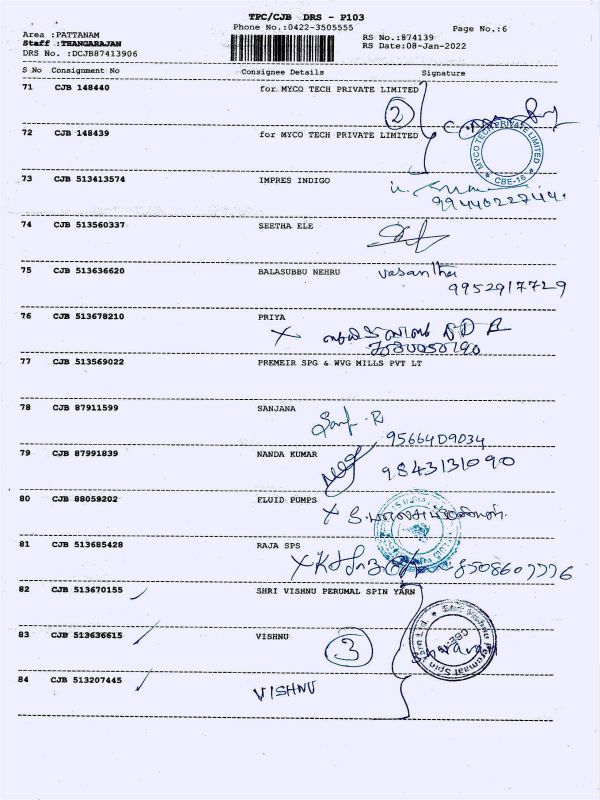 TPC/CJB DRS - P103
Phone No.:0422-3505555
Page No.:6
Area :PATTANAM
RS No.:874139
Staff :THANGARAJAN
RS Date:08-Jan-2022
DRS No. :DCJB87413906
S No Consignment No Consignee Details Signature
71 CJB 148440 for MYCO TECH PRIVATE LIMITED
2
72 CJB 148439 for MYCO TECH PRIVATE LIMITED
MYCO TECH PRIVATE LIMITED
CBE-16
73 CJB 513413574 IMPRES INDIGO
74 CJB 513560337 SEETHA ELE
75 CJB 513636620 BALASUBBU NEHRU Vasantha
9952917729
76 CJB 513678210 PRIYA
77 CJB 513569022 PREMEIR SPG & WVG MILLS PVT LT
78 CJB 87911599 SANJANA
9566409034
79 CJB 87991839 NANDA KUMAR
9843131090
80 CJB 88059202 FLUID PUMPS
81 CJB 513685428 RAJA SPS
8508607776
82 CJB 513670155 SHRI VISHNU PERUMAL SPIN YARN
83 CJB 513636615 VISHNU
3
84 CJB 513207445
VISHNU